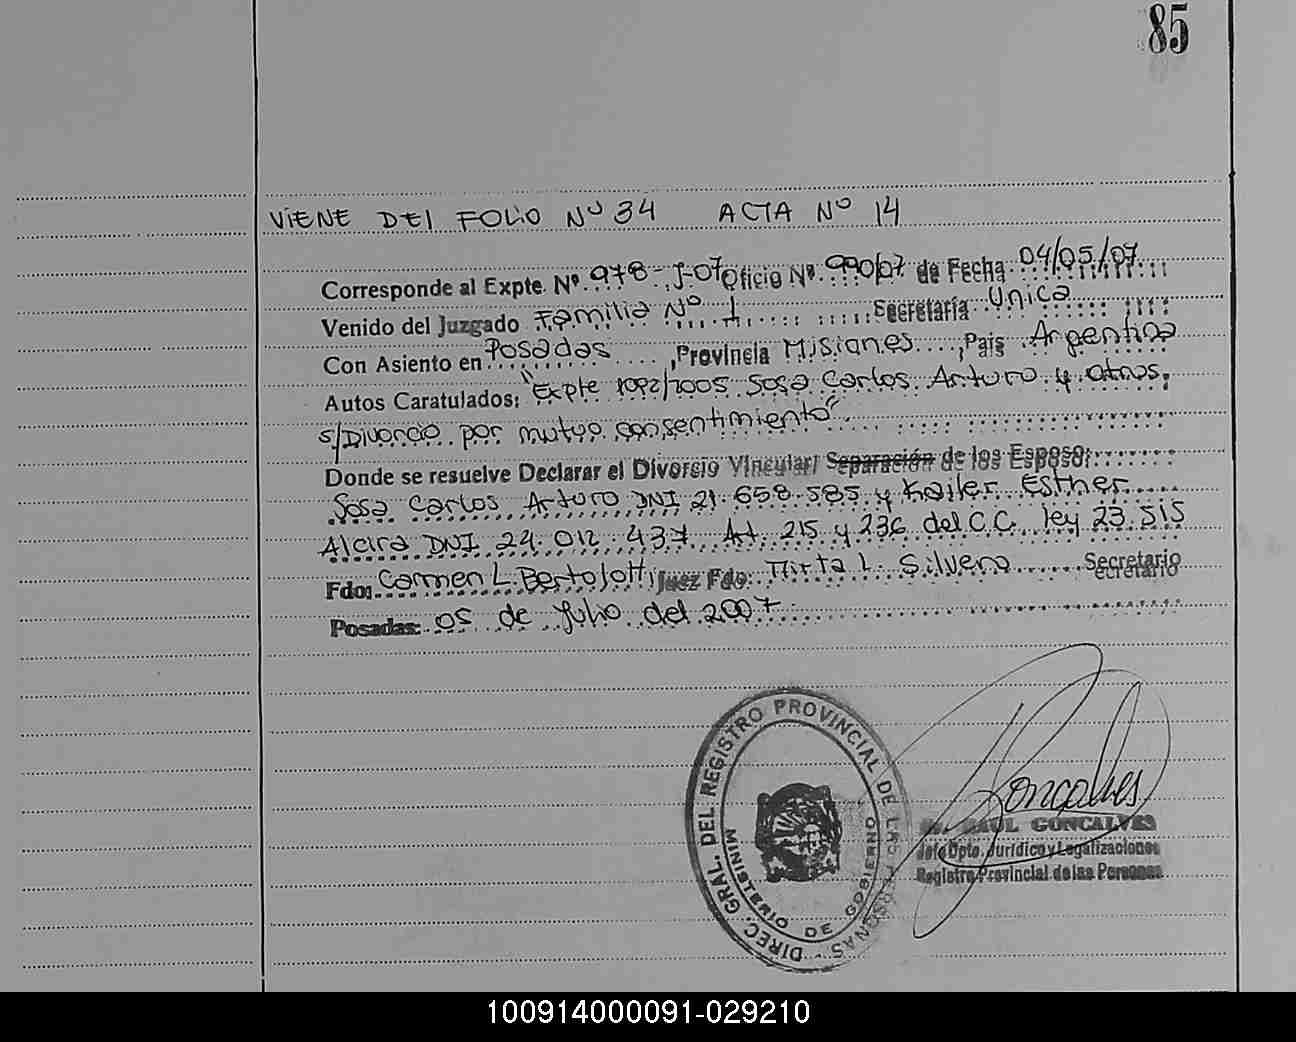 85
VIENE DEL FOLIO Nº 34 ACTA Nº 14
Corresponde al Expte. Nº 978-J-07 Oficio Nº 990/07 de Fecha 04/05/07
Venido del Juzgado Familia Nº 1 Secretaría Unica
Con Asiento en Posadas, Provincia Misiones, País Argentina
Autos Caratulados: "Expte 1092/2005 Sosa Carlos Arturo y otros,
s/Divorcio por mutuo consentimiento"
Donde se resuelve Declarar el Divorcio Vincular/ Separación de los Esposo:
Sosa Carlos Arturo DNI 21.658.585 y Kailer Esther
Alcira DNI 24.012.437 Art. 215 y 236 del C.C. ley 23.515
Fdo: Carmen L. Bertolotti Juez Fdo: Mirta L. Silvero Secretario
Posadas: 05 de Julio del 2007
DIREC. GRAL. DEL REGISTRO PROVINCIAL DE LAS PERSONAS
MINISTERIO DE GOBIERNO
Goncalves
RAUL GONCALVES
Jefe Dpto. Jurídico y Legalizaciones
Registro Provincial de las Personas
100914000091-029210